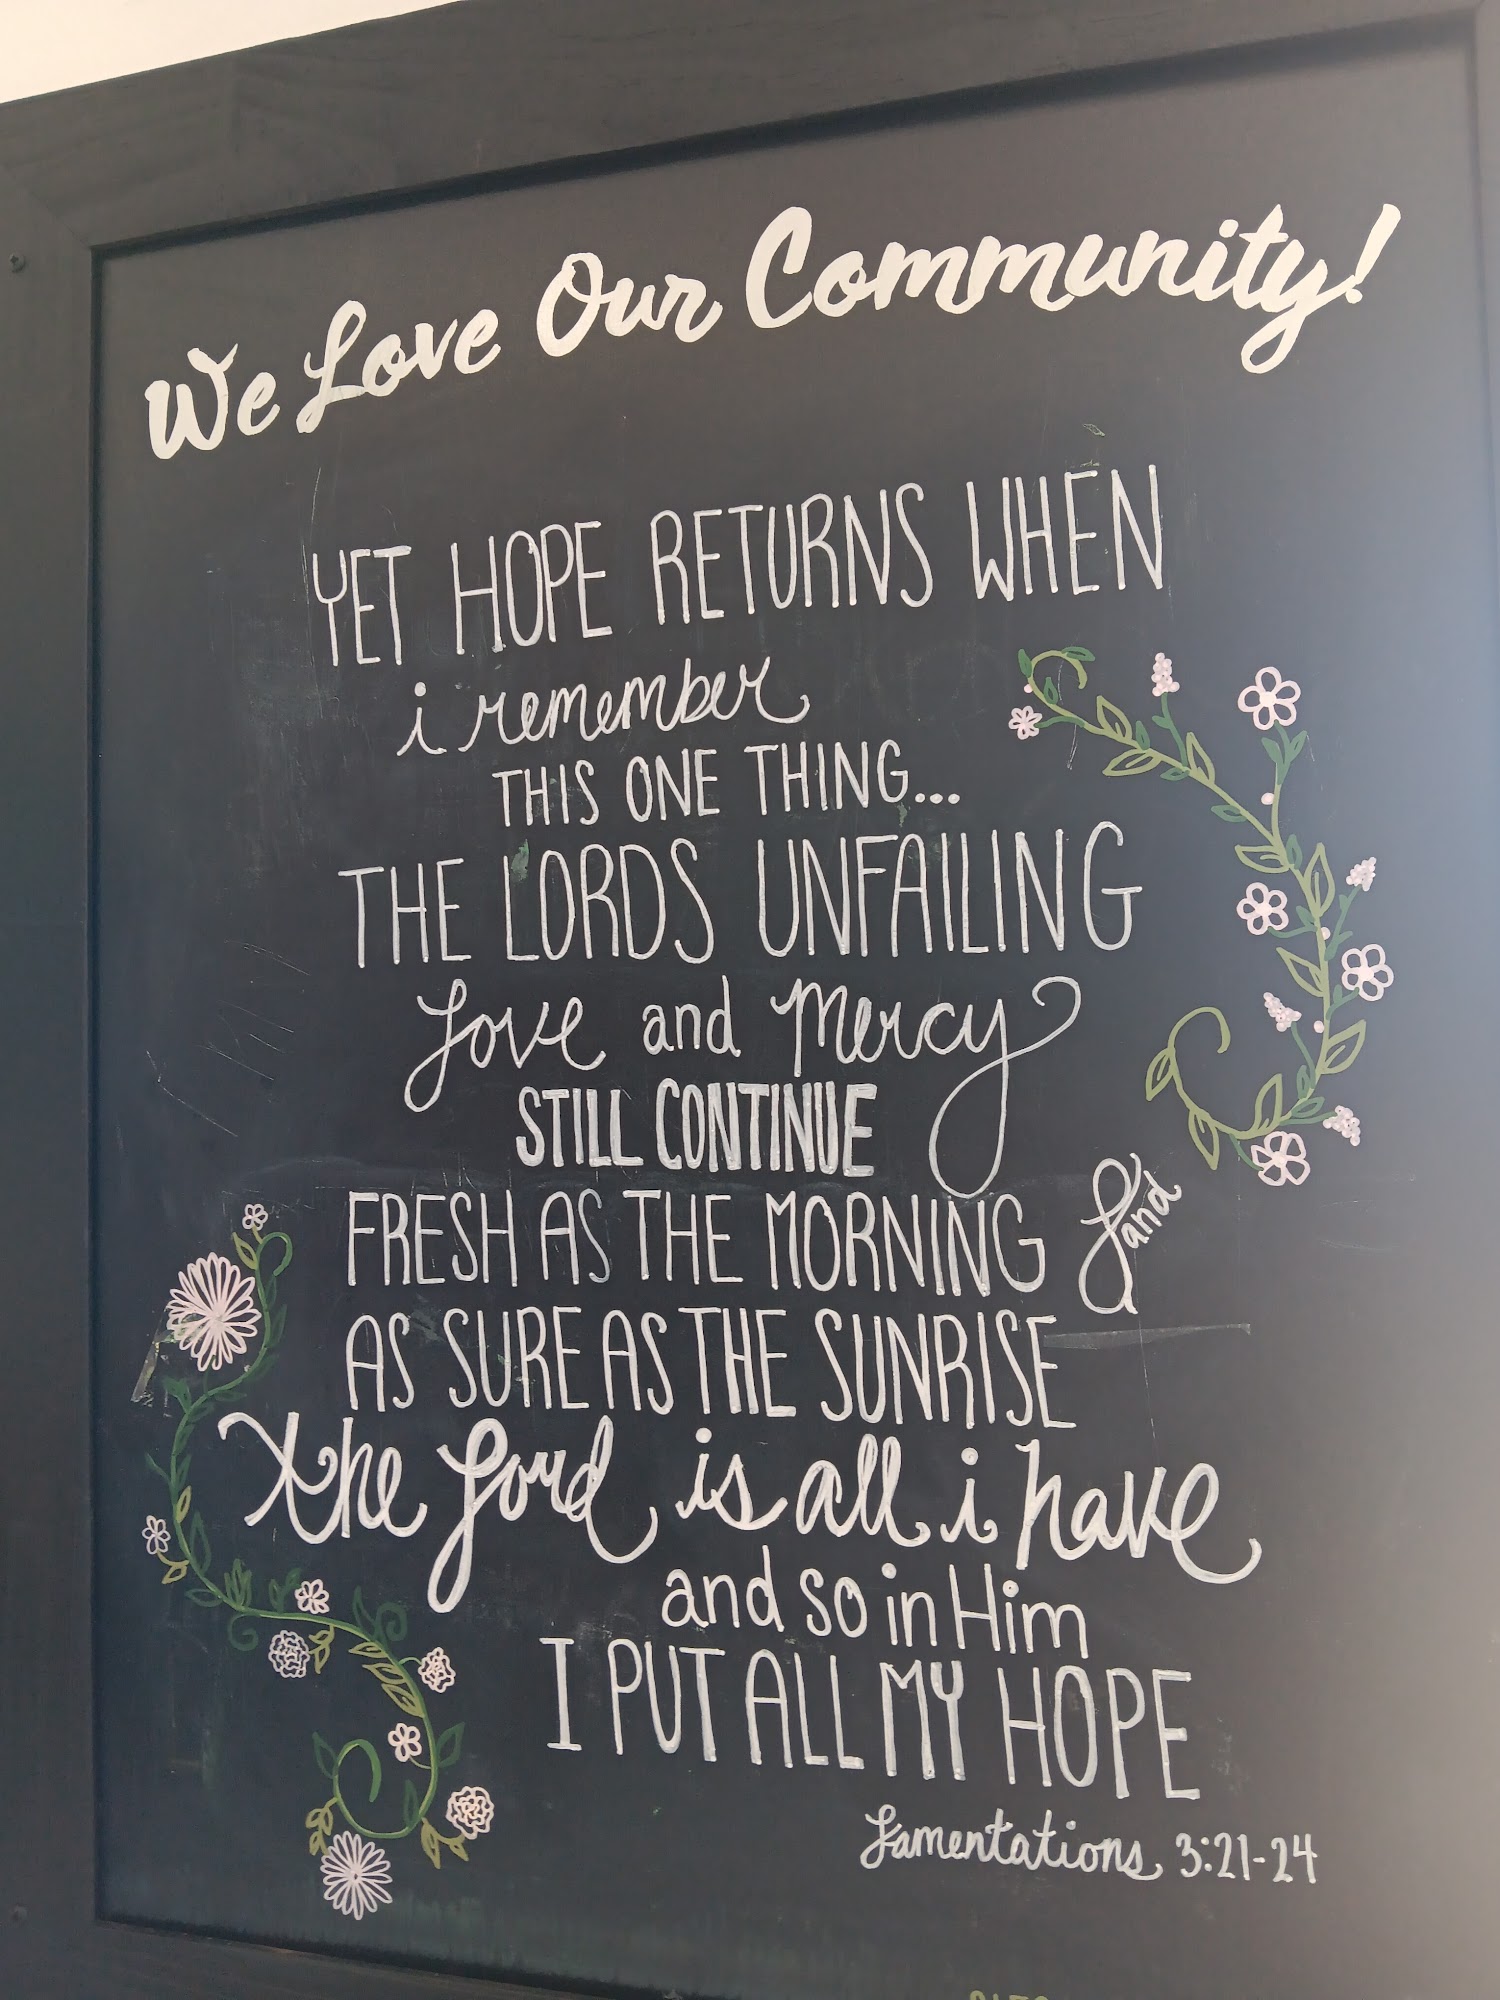 We Love Our Community!
YET HOPE RETURNS WHEN
i remember
THIS ONE THING...
THE LORDS UNFAILING
Love and Mercy
STILL CONTINUE
FRESH AS THE MORNING & and
AS SURE AS THE SUNRISE
the Lord is all i have
and so in Him
I PUT ALL MY HOPE
Lamentations 3:21-24